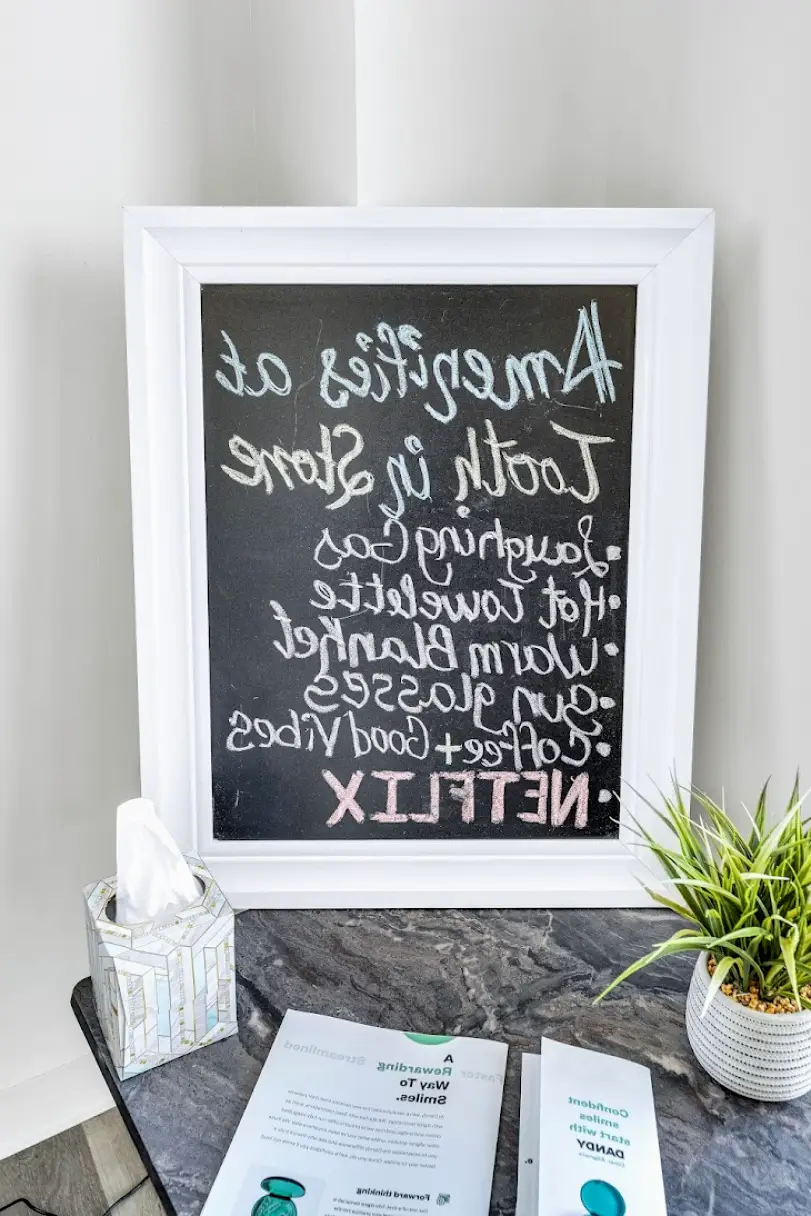 Amenities at
Tooth in Stone
• Laughing Gas
• Hot Towelette
• Warm Blanket
• Sun glasses
• Coffee + Good Vibes
• NETFLIX
A
Rewarding
Way To
Smiles.
Faster
Streamlined
Forward thinking
Confident
smiles
start with
DANDY
Clear Aligners